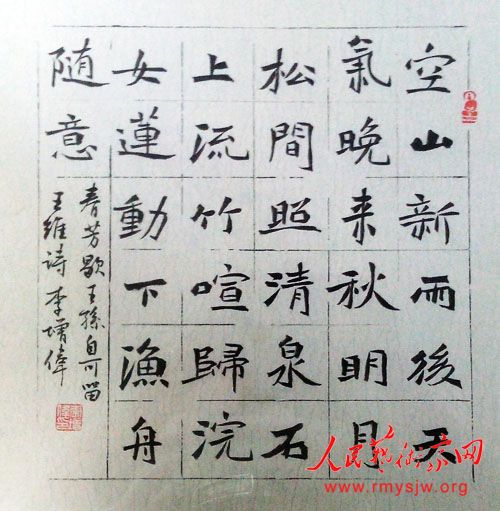 空山新雨後天
氣晚来秋明月
松間照清泉石
上流竹喧歸浣
女蓮動下漁舟
随意
春芳歇王孫自可留
王維诗 李增偉
人民藝術家网
www.rmysjw.org